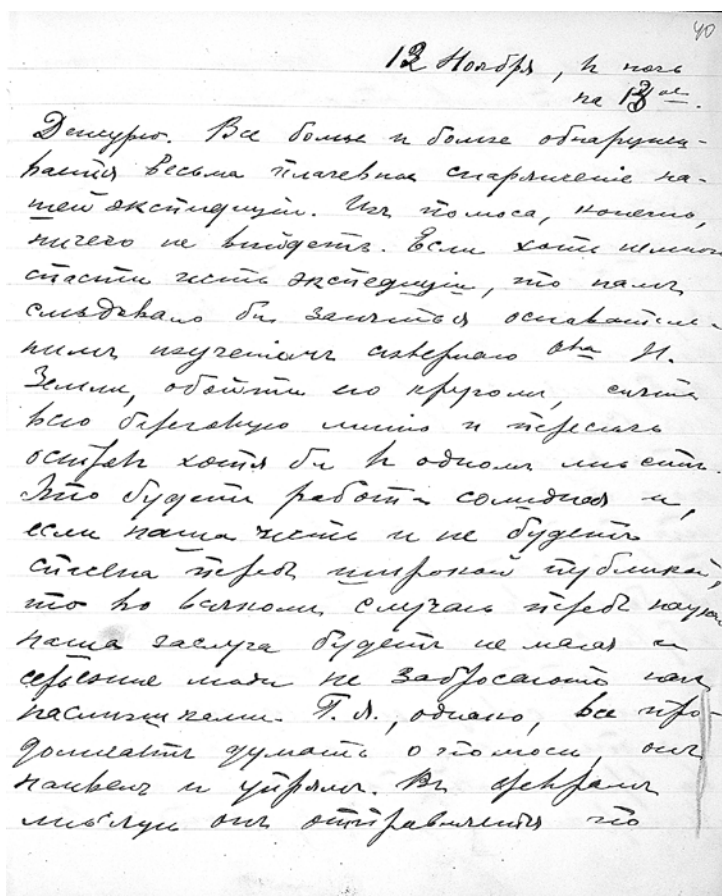 40
12 Ноября, в ночь
на 13 ое.
Дежурю. Все больше и больше обнаружи-
вается весьма плачевное снаряжение на-
шей экспедиции. Из полюса, конечно,
ничего не выйдетъ. Если хоть немного
спасти честь экспедиции, то намъ
слѣдовало бы заняться основатель-
нымъ изученіемъ сѣвернаго о-ва Н.
Земли, обойти его кругомъ, снять
всю береговую линію и пересѣчь
островъ хотя бы въ одномъ мѣстѣ.
Это будетъ работа солидная и,
если наша честь и не будетъ
спасена передъ широкой публикой,
то во всякомъ случаѣ передъ наукой
наша заслуга будетъ не малая и
серьезные люди не забросаютъ насъ
насмѣшками. Г. Я., однако, все про-
должаетъ думать о полюсѣ, онъ
наивенъ и упрямъ. Въ февралѣ
мѣсяцѣ онъ отправляется по